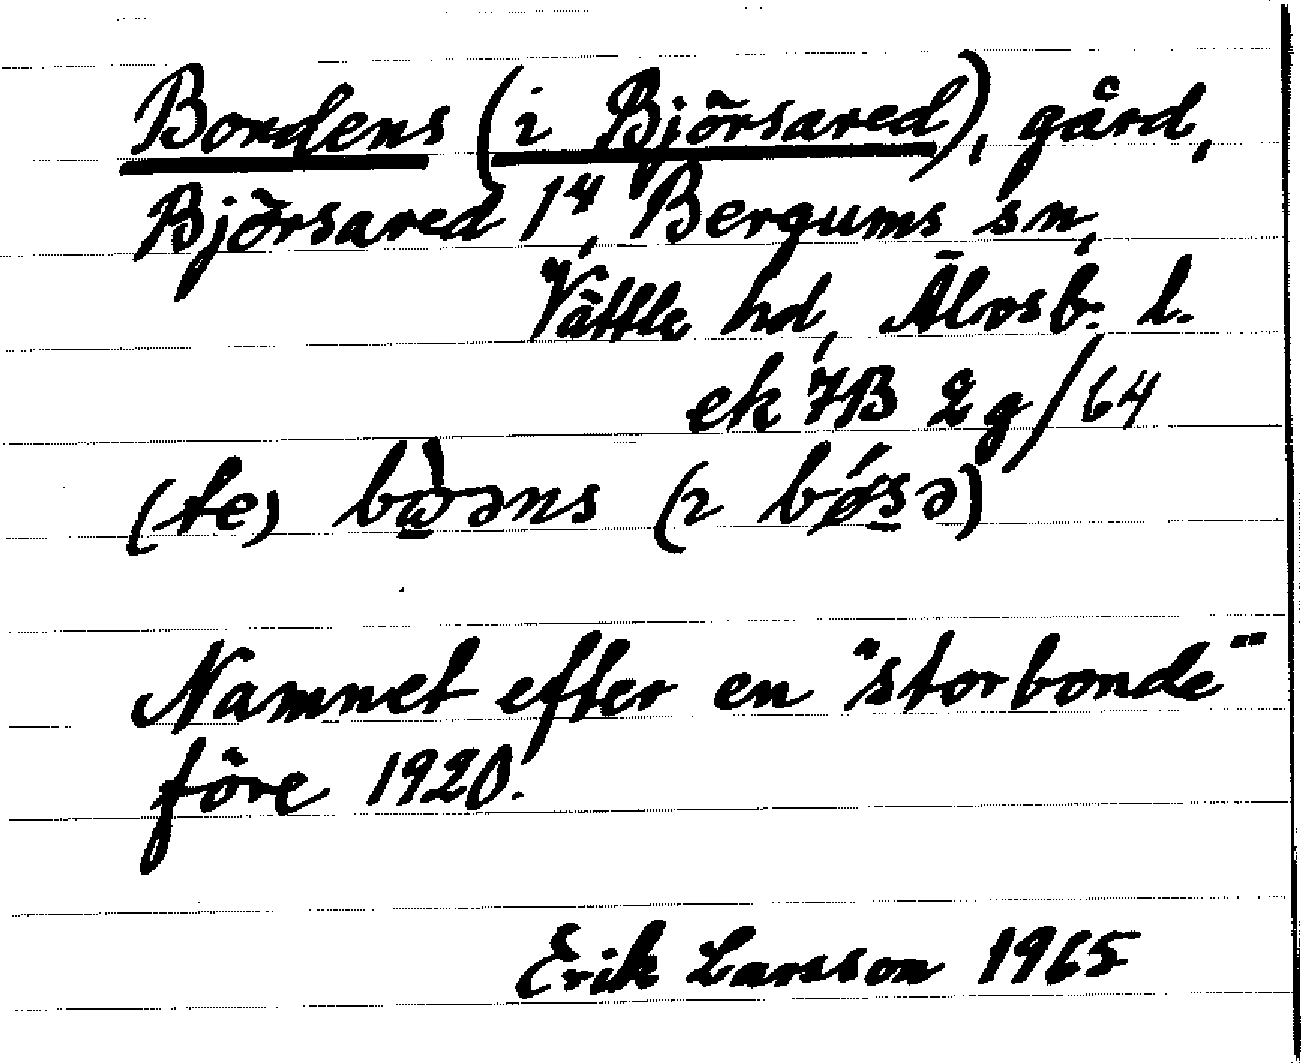 Bondens (i Björsared), gård,
Björsared 1⁴, Bergums sn,
Vättle hd, Älvsb. l.
ek 7B 2g/64
(te) bὼ̱əns (ı bǿs̱ə)
Namnet efter en "storbonde"
före 1920.
Erik Larsson 1965